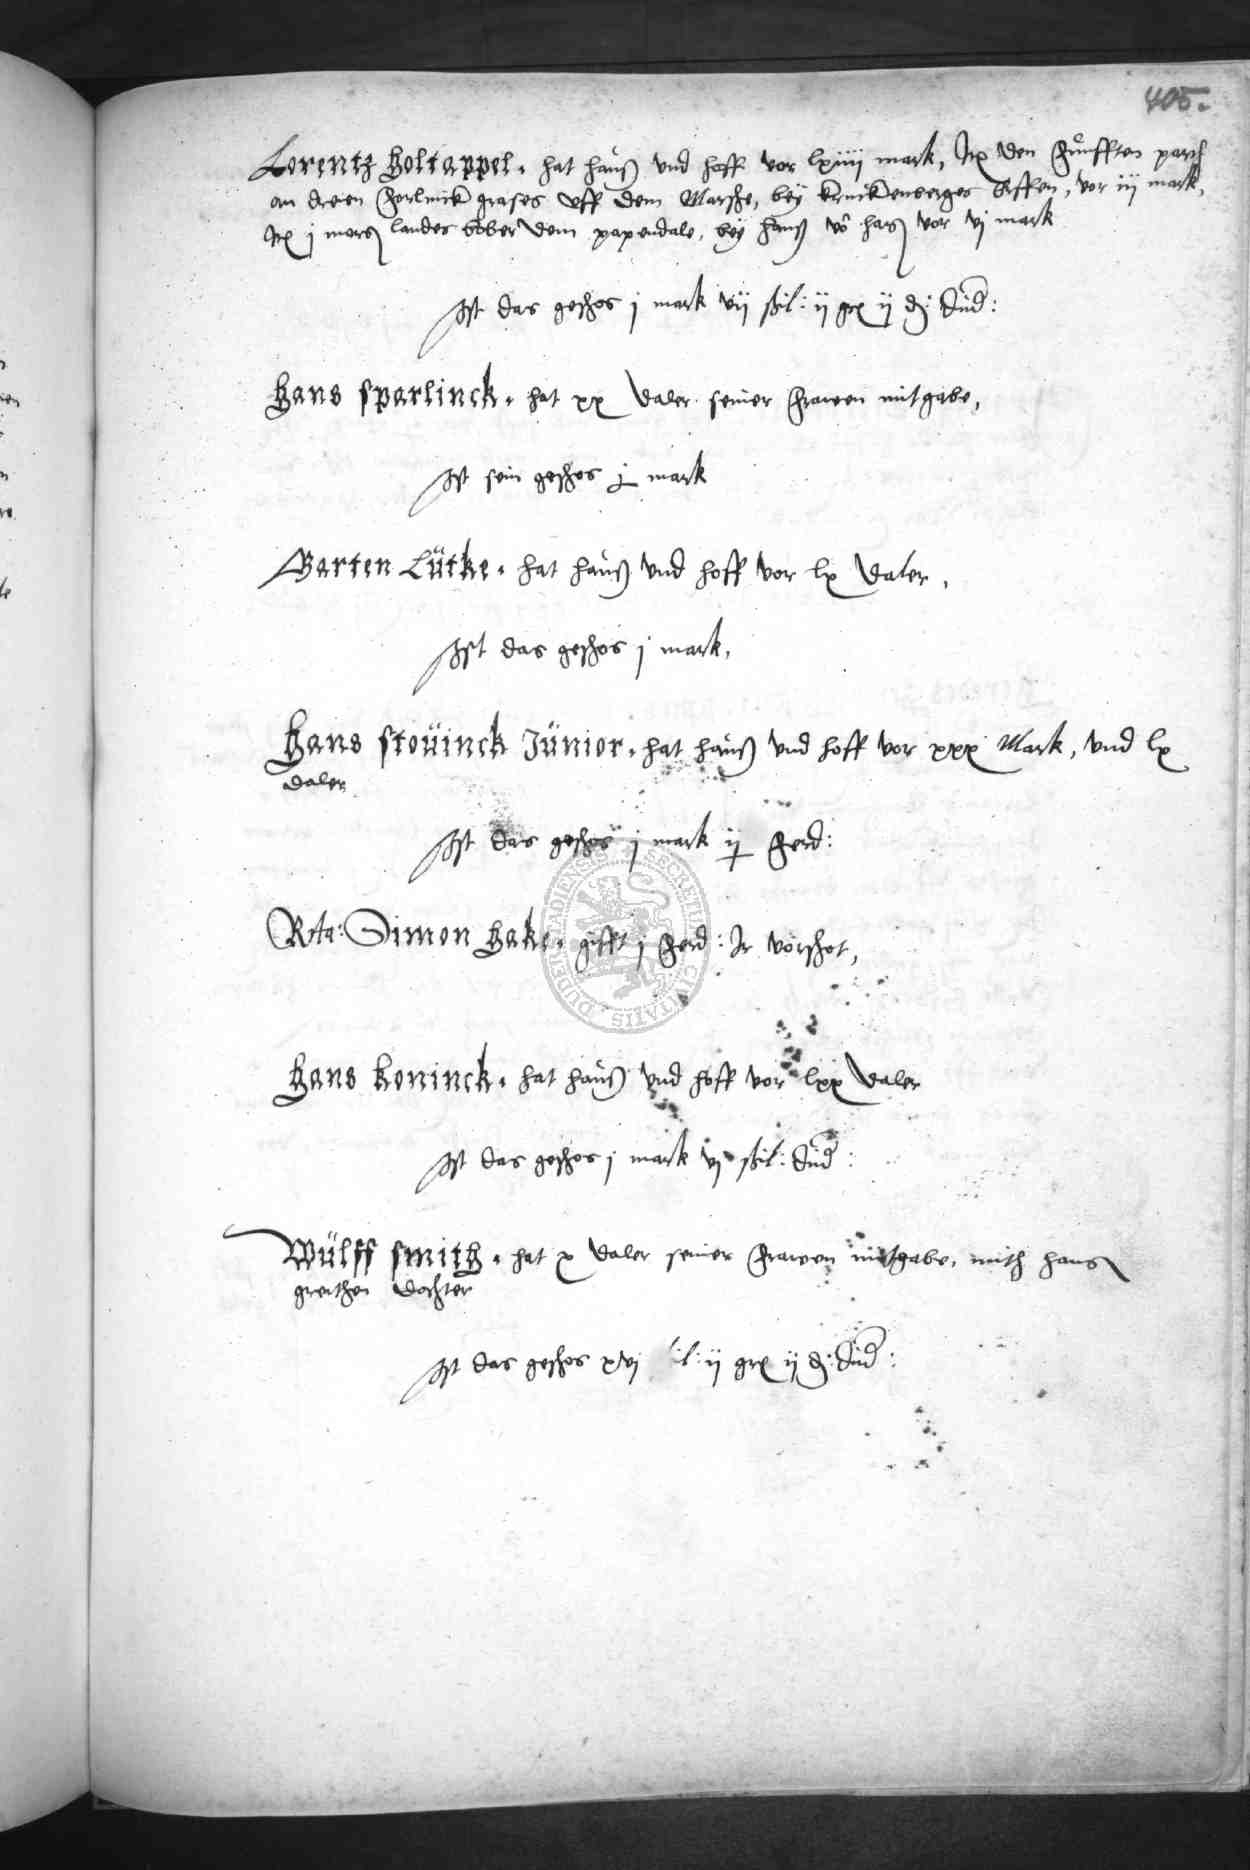 405.
Lorentz Holtappel. hat hauß vnd hoff vor lxiiii mark, Itx den fünfften part
an dreien forlinck grases vff dem Marsche, bey kruckenberges vor iij mark,
Itx j morg landes bober dem papendale, bey hanß vor vj mark
Ist das geschos j mark vij schil: ij gr ij d: dud:
Hans Sparlinck. hat xx daler seiner frawen mitgabe,
Ist sein geschos j mark
Marten Lütke. hat hauß vnd hoff vor lx daler,
Ist das geschos j mark,
Hans Stöuinck Jünior. hat hauß vnd hoff vor xxx Mark, vnd lx
daler
Ist das geschos j mark ij ferd:
Rta: Simon Hake. gifft j ferd: Ir vorschot,
Hans Koninck. hat hauß vnd hoff vor lxx daler
Ist das geschos j mark vj schil: dud:
Wülff Smith. hat x daler seiner frawen mitgabe, mith hans
greithen dochter
Ist das geschos xvj ij gr ij d: dud:
SECRETUM CIVITATIS DUDERSTADIENSIS